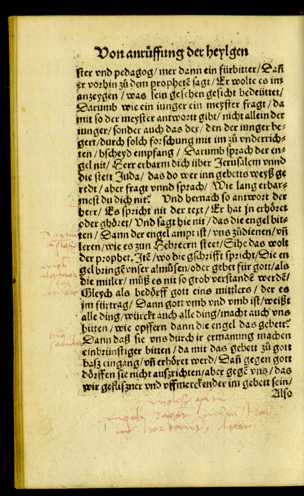 Von anrüffung der heylgen
ster vnd pedagog/mer dann ein fürbitter/Dañ
er vorhin zů dem prophetē sagt/Er wolte es im
anzeygen/was sein geschen gesicht bedeüttet/
Darumb wie ein iunger ein meyster fragt/da
mit so der meyster antwort gibt/nicht allein der
iunger/sonder auch das der/den der iunger be-
gert/durch solch forschung mit im zů vnderrich-
ten/bscheyd empfang/Darumb sprach der en-
gel nit/Herr erbarm dich über Jerusalem vnnd
die stett Juda/das do wer inn gebetts weyß ge
redt/aber fragt vnnd sprach/Wie lang erbar-
mest du dich nit? Vnd hernach so antwort der
herr/Es spricht nit der text/Er hat in erhöret
oder ghöret/Vnd sagt hie nit/das die engel bit-
ten/Dann der engel ampt ist/vns zůdienen/vñ
leren/wie es zun Hebreern steet/Sihe das wolt
der prophet. Itē/wo die gschrifft spricht/Die en
gel bringē vnser almůsen/oder gebet für gott/als
die mitler/můß es nit so grob verstandē werdē/
Gleych als bedörff gott eins mitlers/der es
im fürtrag/Dann gott vmb vnd vmb ist/weyßt
alle ding/würckt auch alle ding/macht auch vns
bitten/wie opffern dann die engel das gebett?
Dann daß sie vns durch ir ermanung machen
einbrünstiger bitten/da mit das gebett zů gott
baß eingang/vñ erhöret werd/Dañ gegen gott
dörffen sie nicht außrichten/aber gegē vns/das
wir gefliszner vnd vffmerckender im gebett sein/
Also